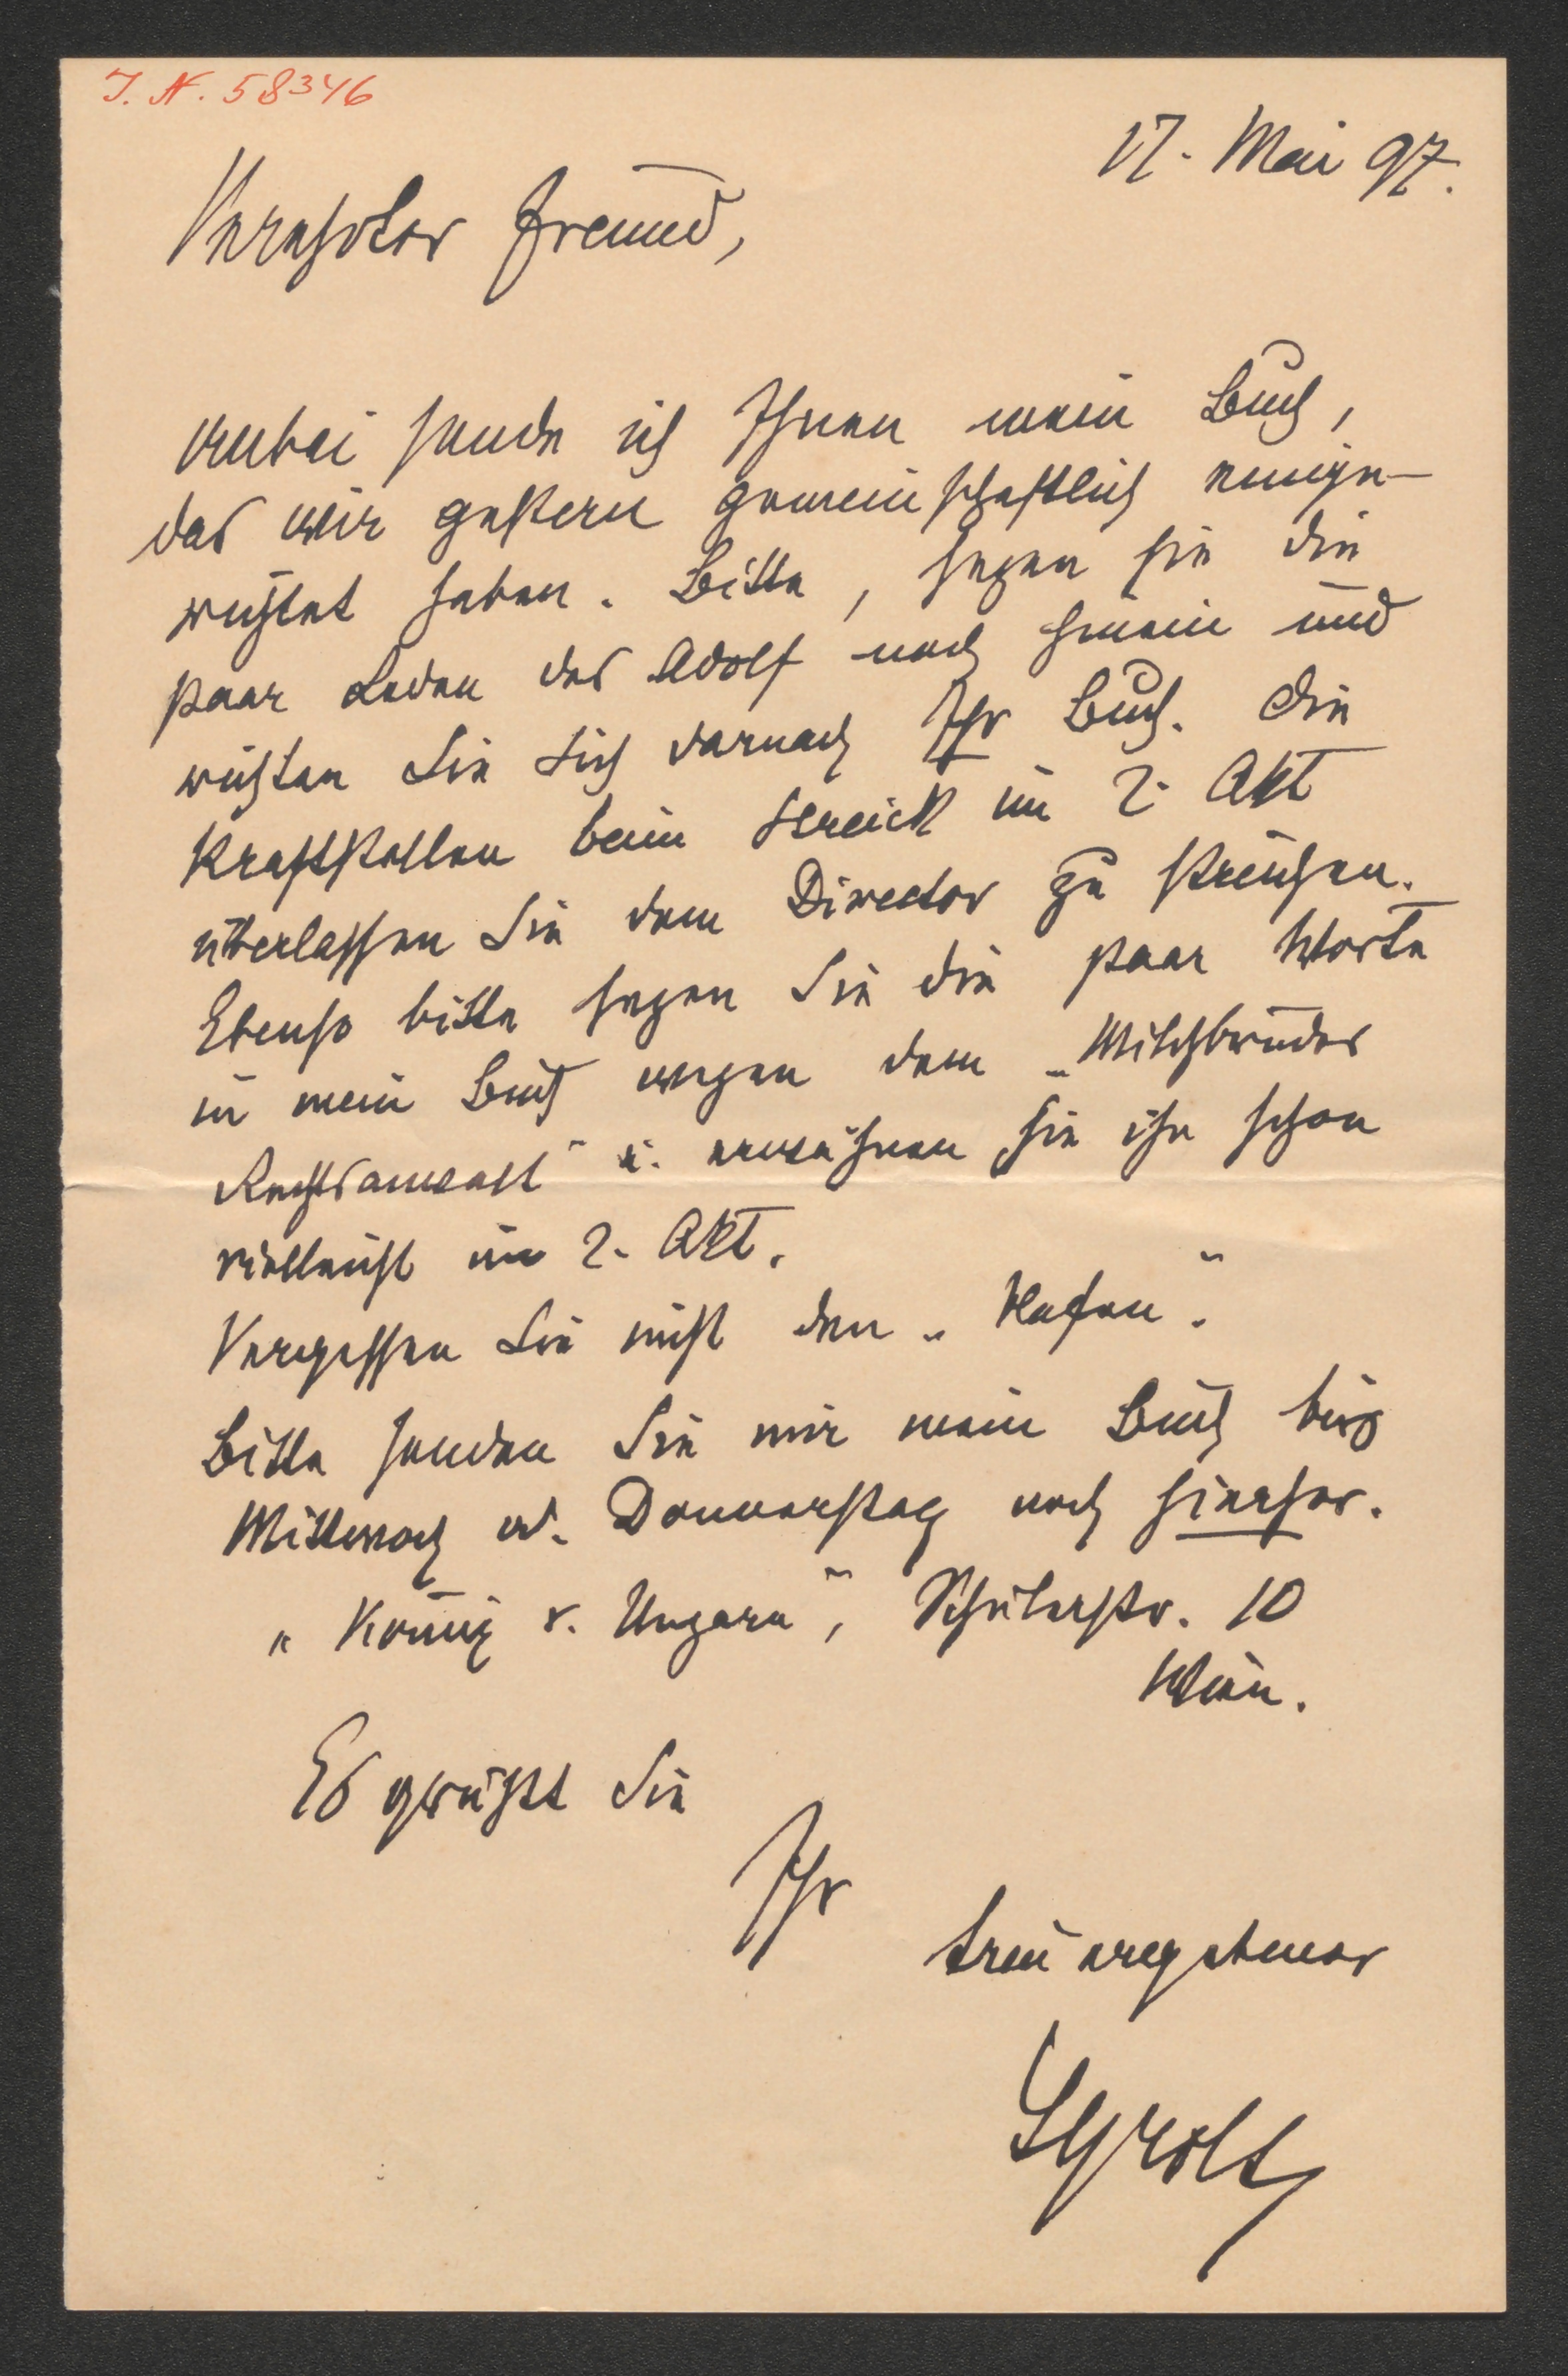 I. N. 58346
17. Mai 97.
Verehrter Freund,
Anbei sende ich Ihnen mein Buch,
das wir gestern gemeinschaftlich einge-
richtet haben. Bitte, setzen sie die
paar Reden des Adolf noch hinein und
richten Sie Sich darnach Ihr Buch. Die
Kraftstellen beim Streick im 2. Akt
überlassen Sie dem Director zu streichen.
Ebenso bitte setzen Sie die paar Worte
in mein Buch wegen dem „Milchbruder
Rechtsanwalt" u. erwähnen Sie ihn schon
vielleicht im 2. Akt.
Vergessen Sie nicht den „Hafen".
Bitte senden Sie mir mein Buch bis
Mittwoch od. Donnerstag noch hierher.
„König v. Ungarn", Schulerstr. 10
Wien.
Es grüßt Sie
Ihr
treu ergebener
Tyrolt